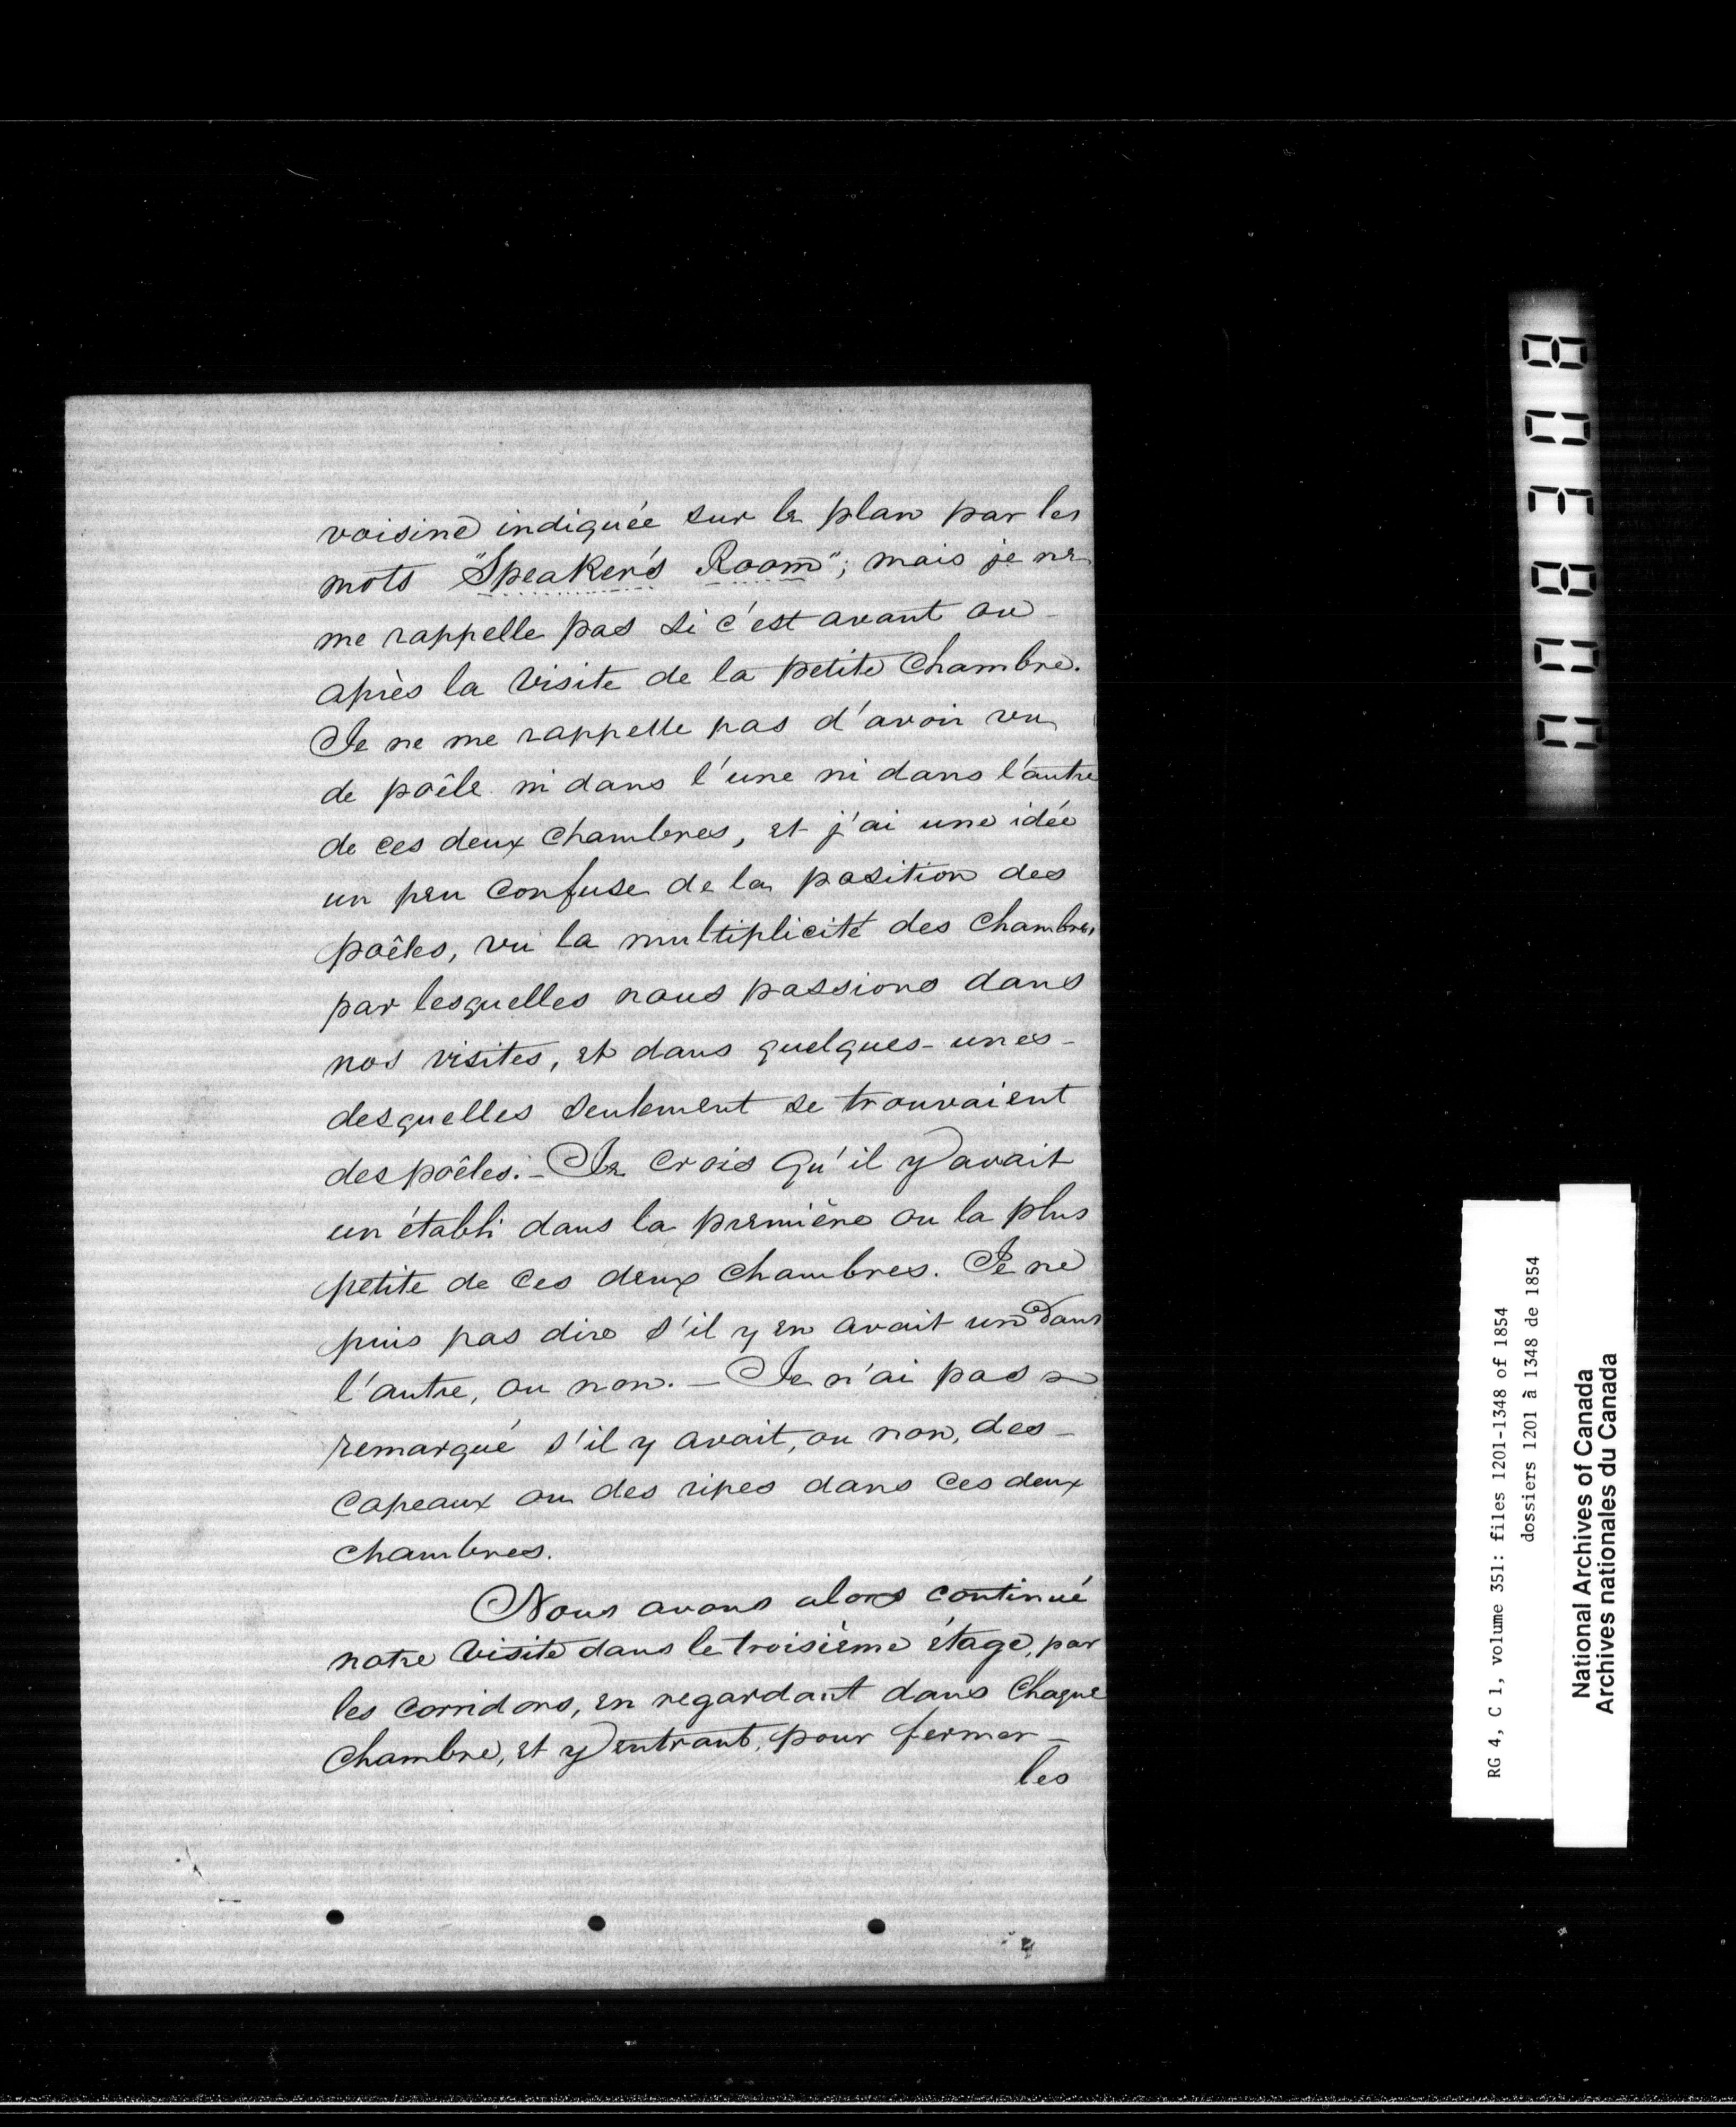 voisine indiquée sur le plan par les
mots "Speaker's Room"; mais je ne
me rappelle pas si c'est avant ou
après la visite de la petite chambre.
Je ne me rappelle pas d'avoir vu
de poêle ni dans l'une ni dans l'autre
de ces deux chambres, et j'ai une idée
un peu confuse de la position des
poêles, vu la multiplicité des chambres
par lesquelles nous passions dans
nos visites, et dans quelques-unes
desquelles seulement se trouvaient
des poêles. - Je crois qu'il y avait
un établi dans la première ou la plus
petite de ces deux chambres. Je ne
puis pas dire s'il y en avait un dans
l'autre, ou non. - Je n'ai pas
remarqué s'il y avait, ou non, des
capeaux ou des ripes dans ces deux
chambres.
Nous avons alors continué
notre visite dans le troisième étage, par
les corridors, en regardant dans chaque
chambre, et y entrant, pour fermer
les
803800
RG 4, C 1, volume 351: files 1201-1348 of 1854
dossiers 1201 à 1348 de 1854
National Archives of Canada
Archives nationales du Canada